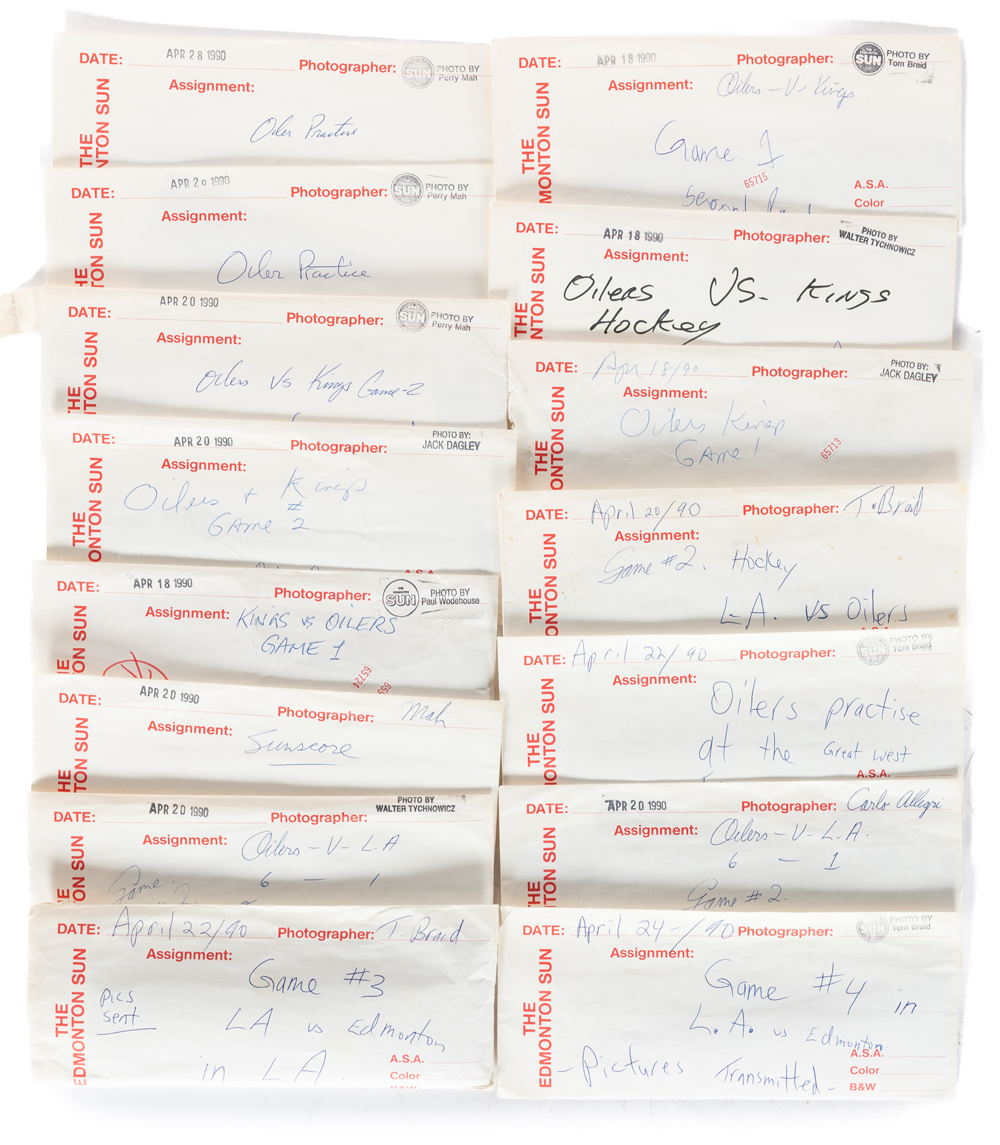 DATE: APR 28 1990 Photographer: SUN PHOTO BY Perry Mah
Assignment:
Oiler Practice
THE
EDMONTON SUN
DATE: APR 20 1990 Photographer: SUN PHOTO BY Perry Mah
Assignment:
Oiler Practice
DATE: APR 20 1990 Photographer: SUN PHOTO BY Perry Mah
Assignment:
Oilers vs Kings Game-2
DATE: APR 20 1990 Photographer: PHOTO BY: JACK DAGLEY
Assignment:
Oilers + Kings
GAME # 2
DATE: APR 18 1990 Photographer: SUN PHOTO BY Paul Wodehouse
Assignment: KINGS vs OILERS
GAME 1
65724
DATE: APR 20 1990 Photographer: Mah
Assignment:
Sunscore
DATE: APR 20 1990 Photographer: PHOTO BY WALTER TYCHNOWICZ
Assignment: Oilers-V-L.A
6 - 1
Game
2
DATE: April 22/90 Photographer: T. Braid
Assignment:
Game #3
pics
sent
LA vs Edmonton
in LA
A.S.A.
Color
B&W
THE
EDMONTON SUN
DATE: APR 18 1990 Photographer: SUN PHOTO BY Tom Braid
Assignment: Oilers-V-Kings
Game 1
65715
Second
A.S.A.
Color
DATE: APR 18 1990 Photographer: PHOTO BY WALTER TYCHNOWICZ
Assignment:
Oilers VS. Kings
Hockey
DATE: Apr 18/90 Photographer: PHOTO BY: JACK DAGLEY
Assignment:
Oilers Kings
GAME 1
65713
DATE: April 20/90 Photographer: T. Braid
Assignment:
Game #2. Hockey
L.A. vs Oilers
DATE: April 22/90 Photographer: SUN PHOTO BY Tom Braid
Assignment:
Oilers practise
at the Great west
A.S.A.
DATE: APR 20 1990 Photographer: Carlo Allegri
Assignment: Oilers-V-L.A.
6 - 1
Game #2.
DATE: April 24-/90 Photographer: SUN PHOTO BY Tom Braid
Assignment:
Game #4 in
L.A. vs Edmonton
-Pictures Transmitted-
A.S.A.
Color
B&W
THE
EDMONTON SUN